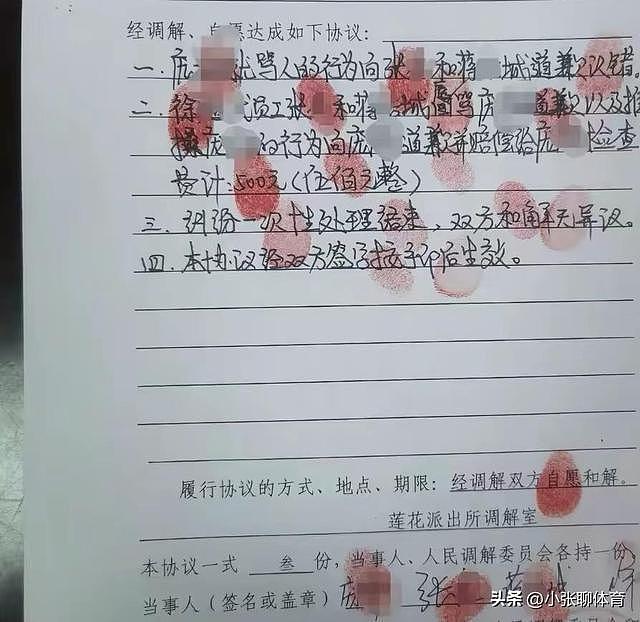 经调解、自愿达成如下协议:
一.庞 骂人的行为向张 和蒋 城道歉认错
二.徐 员工张 和蒋 城 骂庞 道歉以及推
操庞 的行为向庞 道歉并赔偿给庞 检查
费计:500元(伍佰元整)
三.纠纷一次性处理结束,双方和解无异议。
四.本协议经双方签字按手印后生效。
履行协议的方式、地点、期限:经调解双方自愿和解。
莲花派出所调解室
本协议一式 叁 份,当事人、人民调解委员会各持一份。
当事人(签名或盖章)庞 张 蒋
头条 @小张聊体育